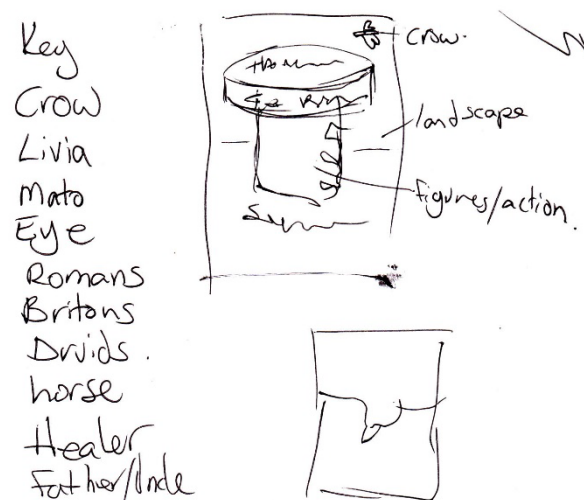 Key
Crow
Livia
Mato
Eye
Romans
Britons
Druids.
horse
Healer
Father/Uncle
crow.
landscape
figures/action.